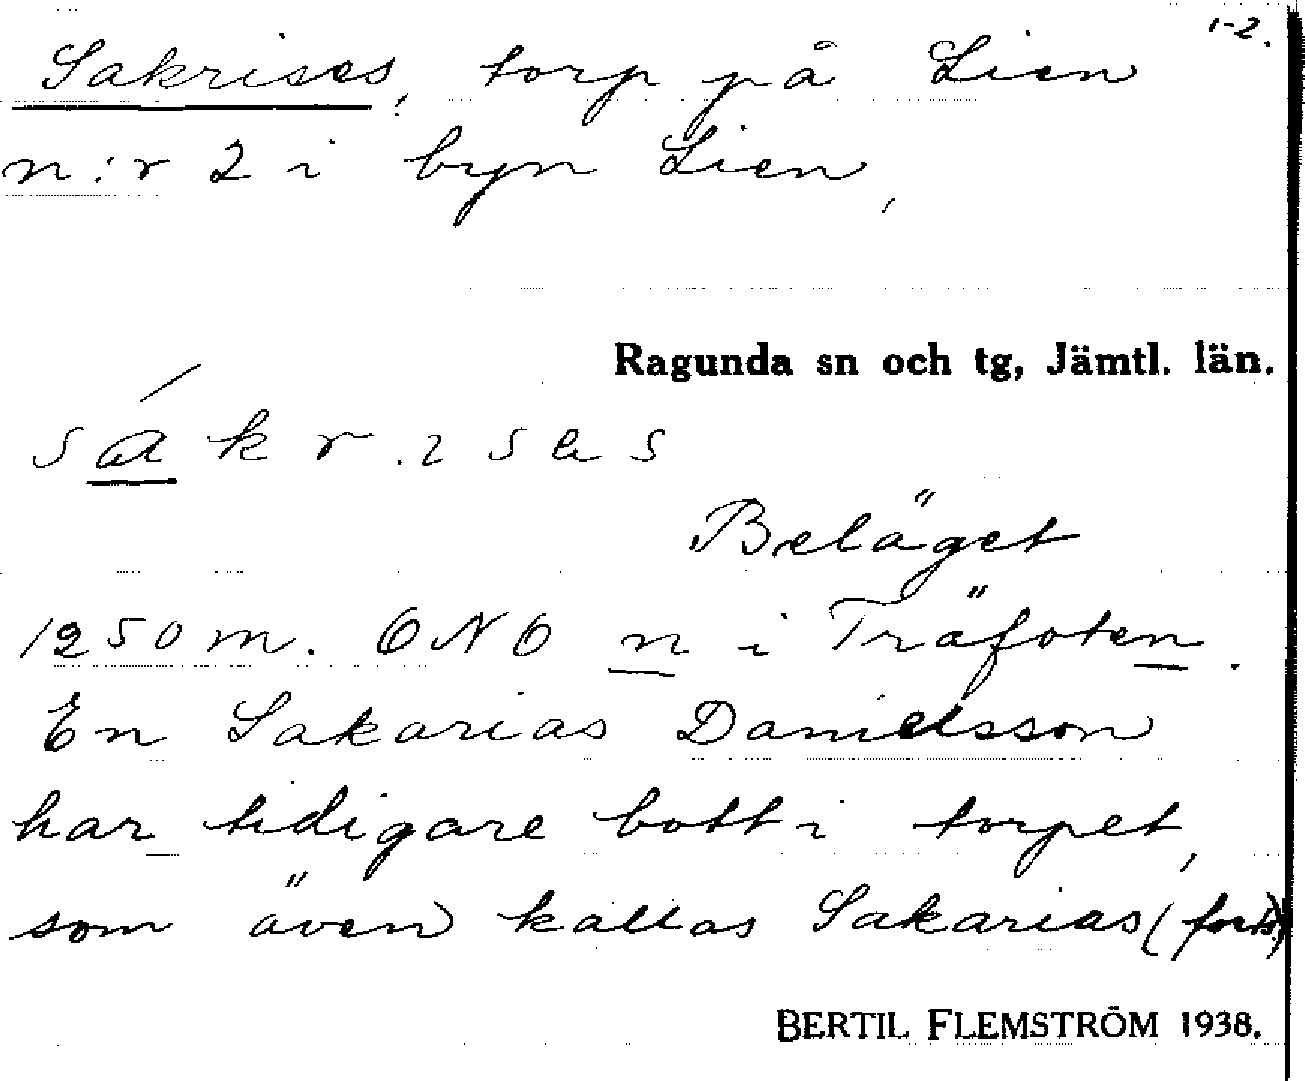 1-2.
Sakrises, torp på Lien
n:r 2 i byn Lien,
Ragunda sn och tg, Jämtl. län.
Beläget
1250 m. ONO n i Träfoten.
En Sakarias Danielsson
har tidigare bott i torpet,
som även kallas Sakarias (forts.)
BERTIL FLEMSTRÖM 1938.